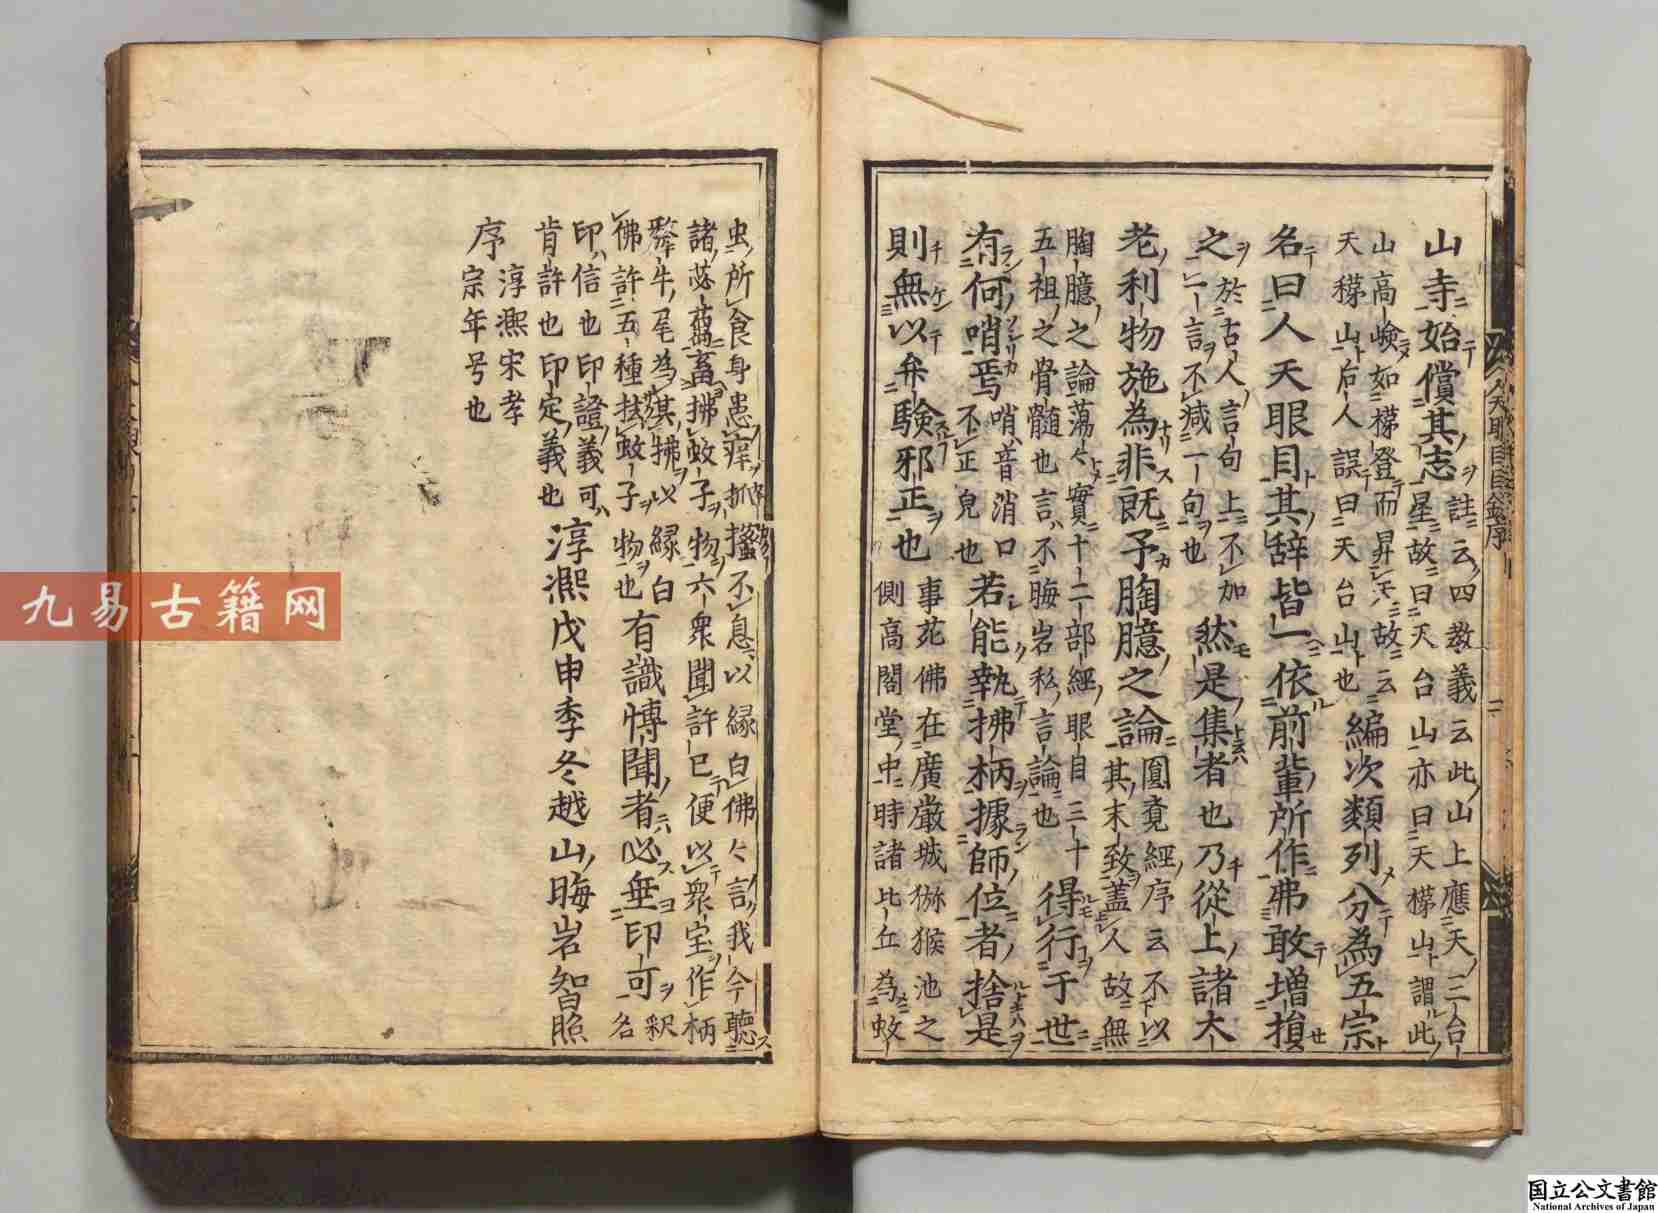 山寺始償其志 註云四教義云此山上應天三台
星故曰天台山亦曰天㯶山謂此
山高嶮如㯶登而昇天故云
天㯶山后人誤曰天台山也 編次類列分為五宗
名曰人天眼目其辞皆一依前輩所作弗敢増損
之 於古人言句上不加
一言不減一句也 然是集者也乃從上諸大
老利物施為非既予胸臆之論 圓覚經序云不以
其末致蓋人故無
胸臆之論蕩々實十二部經眼目三十
五祖之骨髄也言不晦岩私言論也 得行于世
有何哨焉 哨音消口
不正皃也 若能執拂柄據師位者捨是
則無以弁験邪正也 事苑佛在廣嚴城猕猴池之
側高閣堂中時諸比丘為蚊
虫所食身患痒抓搔不息以縁白佛々言我今聽
諸苾蒭畜拂蚊子物六衆聞許已便以衆宝作柄
犛牛尾為其拂以縁白
佛許五種拭蚊子物也 有識愽聞者必垂印可 釈名
印信也印證義可
肯許也印定義也 淳熈戊申季冬越山晦岩智昭
序 淳熈宋孝
宗年号也
人天眼目鈔序
九易古籍网
国立公文書館
National Archives of Japan